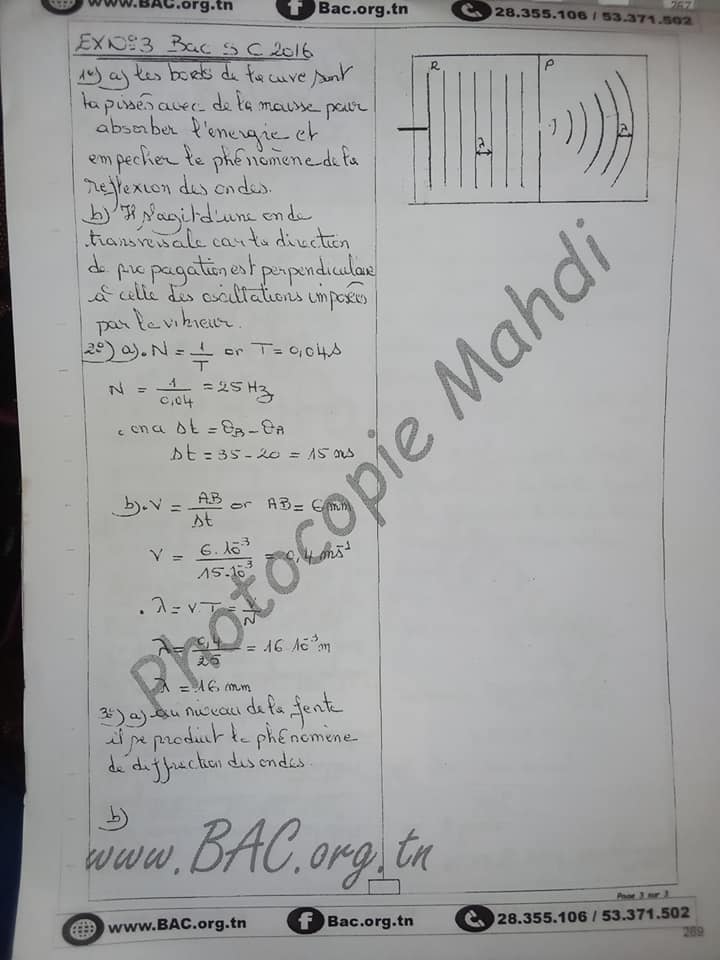 www.BAC.org.tn
Bac.org.tn
28.355.106 / 53.371.502
267
EX N°3 Bac SC 2016
1°) a) Les bords de la cuve sont
tapissés avec de la mousse pour
absorber l'énergie et
empecher le phénomène de la
reflexion des ondes.
b) Il s'agit d'une onde
transversale car la direction
de propagation est perpendiculaire
à celle des oscillations imposées
par le vibreur.
2°) a). N = 1/T or T = 0,04s
N = 1/0,04 = 25 Hz
. on a Δt = θB - θA
Δt = 35 - 20 = 15 ms
b). V = AB/Δt or AB = 6 mm
V = 6.10⁻³/15.10⁻³ = 0,4 ms⁻¹
. λ = V.T = V/N
λ = 0,4/25 = 16 10⁻³m
λ = 16 mm
3°) a) au niveau de la fente
il se produit le phénomène
de diffraction des ondes.
b)
R
P
λ
λ
Photocopie Mahdi
www.BAC.org.tn
Page 3 sur 3
www.BAC.org.tn
Bac.org.tn
28.355.106 / 53.371.502
269